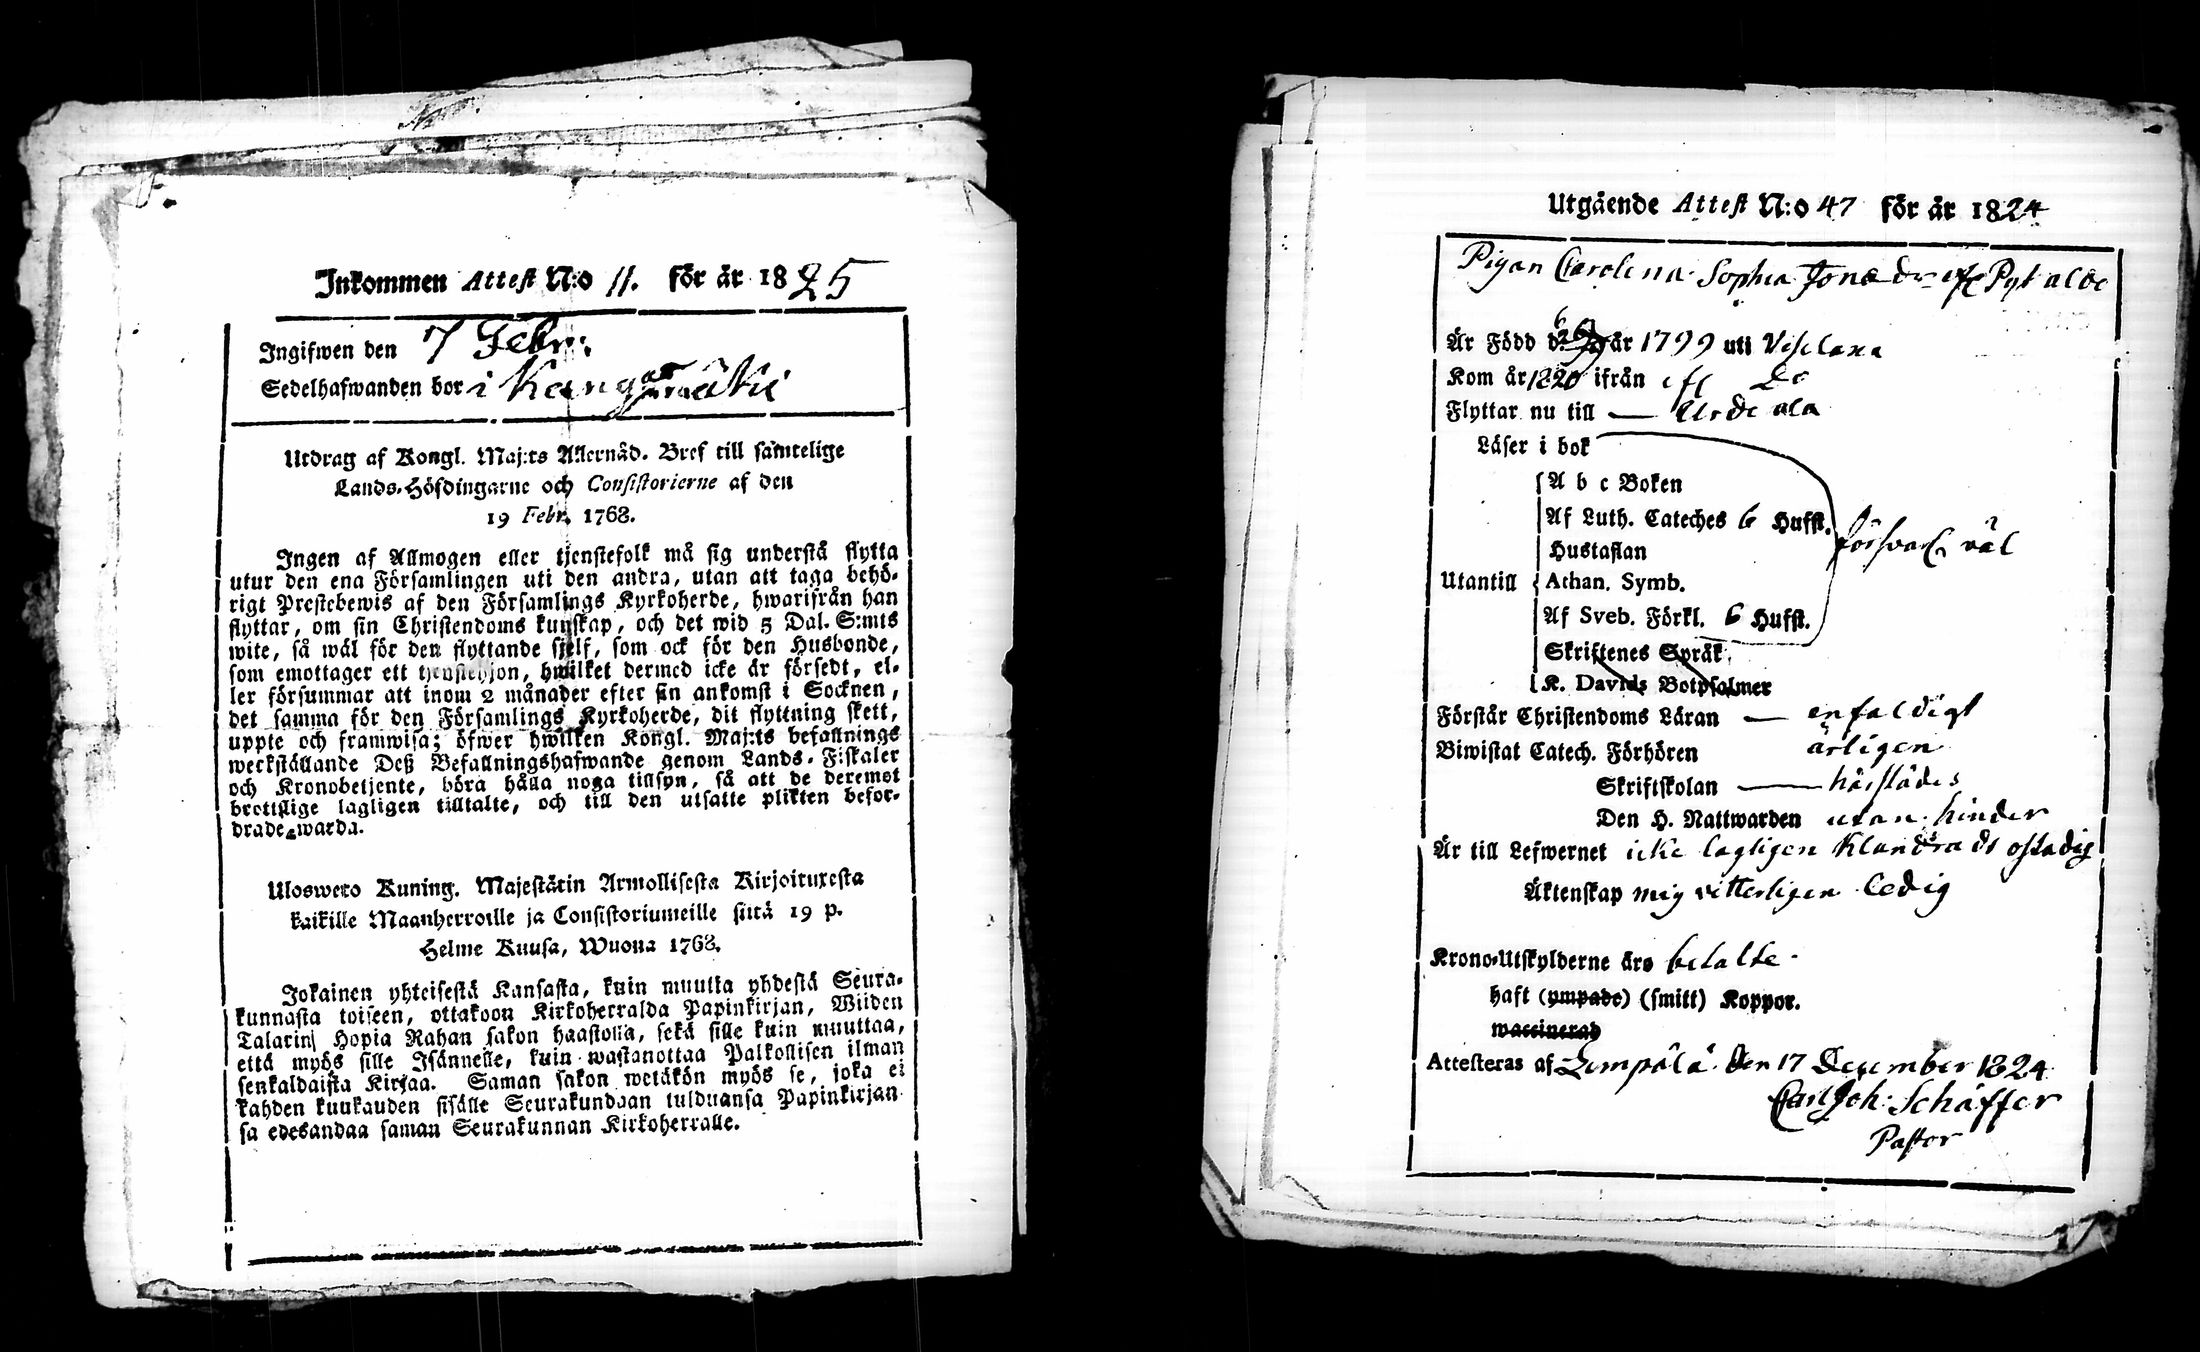 Inkommen Attest N:o 11. för år 1825
Ingifwen den 7 Febr:
Sedelhafwanden bor i Kangasmäki
Utdrag af Kongl. Maj:ts Allernåd. Bref till samtelige
Lands-Höfdingarne och Consistorierne af den
19 Febr. 1768.
Ingen af Allmogen eller tjenstefolk må sig understå flytta
utur den ena Församlingen uti den andra, utan att taga behö-
rigt Prestebewis af den Församlings Kyrkoherde, hwarifrån han
flyttar, om sin Christendoms kunskap, och det wid 5 Dal. S:mts
wite, så wäl för den flyttande sjelf, som ock för den Husbonde,
som emottager ett tjenstehjon, hwilket dermed icke är försedt, el-
ler försummar att inom 2 månader efter sin ankomst i Socknen,
det samma för den Församlings Kyrkoherde, dit flyttning skett,
uppte och framwisa; öfwer hwilken Kongl. Maj:ts befallnings
werkställande Deß Befallningshafwande genom Lands-Fiskaler
och Kronobetjente, böra hålla noga tillsyn, så att de deremot
brottslige lagligen tilltalte, och till den utsatte plikten befor-
drade warda.
Uloswero Kuning. Majestätin Armollisesta Kirjoituxesta
kaikille Maanherroille ja Consistoriumeille siitä 19 p.
Helme Kuusa, Wuona 1768.
Jokainen yhteisestä Kansasta, kuin muutta yhdestä Seura-
kunnasta toiseen, ottakoon Kirkoherralda Papinkirjan, Wiiden
Talarin Hopia Rahan sakon haastolla, sekä sille kuin muuttaa,
että myös sille Isännelle, kuin wastanottaa Palkollisen ilman
senkaldaista Kirjaa. Saman sakon wetäkön myös se, joka ei
kahden kuukauden sisälle Seurakundaan tulduansa Papinkirjan
sa edesandaa saman Seurakunnan Kirkoherralle.
Utgående Attest N:o 47 för år 1824
Pigan Carolina Sophia Jonæ dr ifr Pyt alde
Är Född d. 6 år 1799 uti Vesilaxa
Kom år 1820 ifrån ifr Do
Flyttar nu till — Urdiala
Läser i bok
A b c Boken
Af Luth. Cateches 6 Hufst.
försvarl. väl
Hustaflan
Utantill Athan. Symb.
Af Sveb. Förkl. 6 Hufst.
Skriftenes Språk
K. Davids Botpsalmer
Förstår Christendoms Läran — enfaldigt
Biwistat Catech. Förhören årligen
Skriftskolan — härstädes
Den H. Nattwarden utan hinder
Är till Lefwernet icke lagligen klandrad ostadig
Äktenskap mig vitterligen ledig
Krono-Utskylderne äro betalte.
haft (ympade) (smitt) Koppor.
waccinerad
Attesteras af Lempälä den 17 December 1824
Carl Joh: Schäffer
Pastor